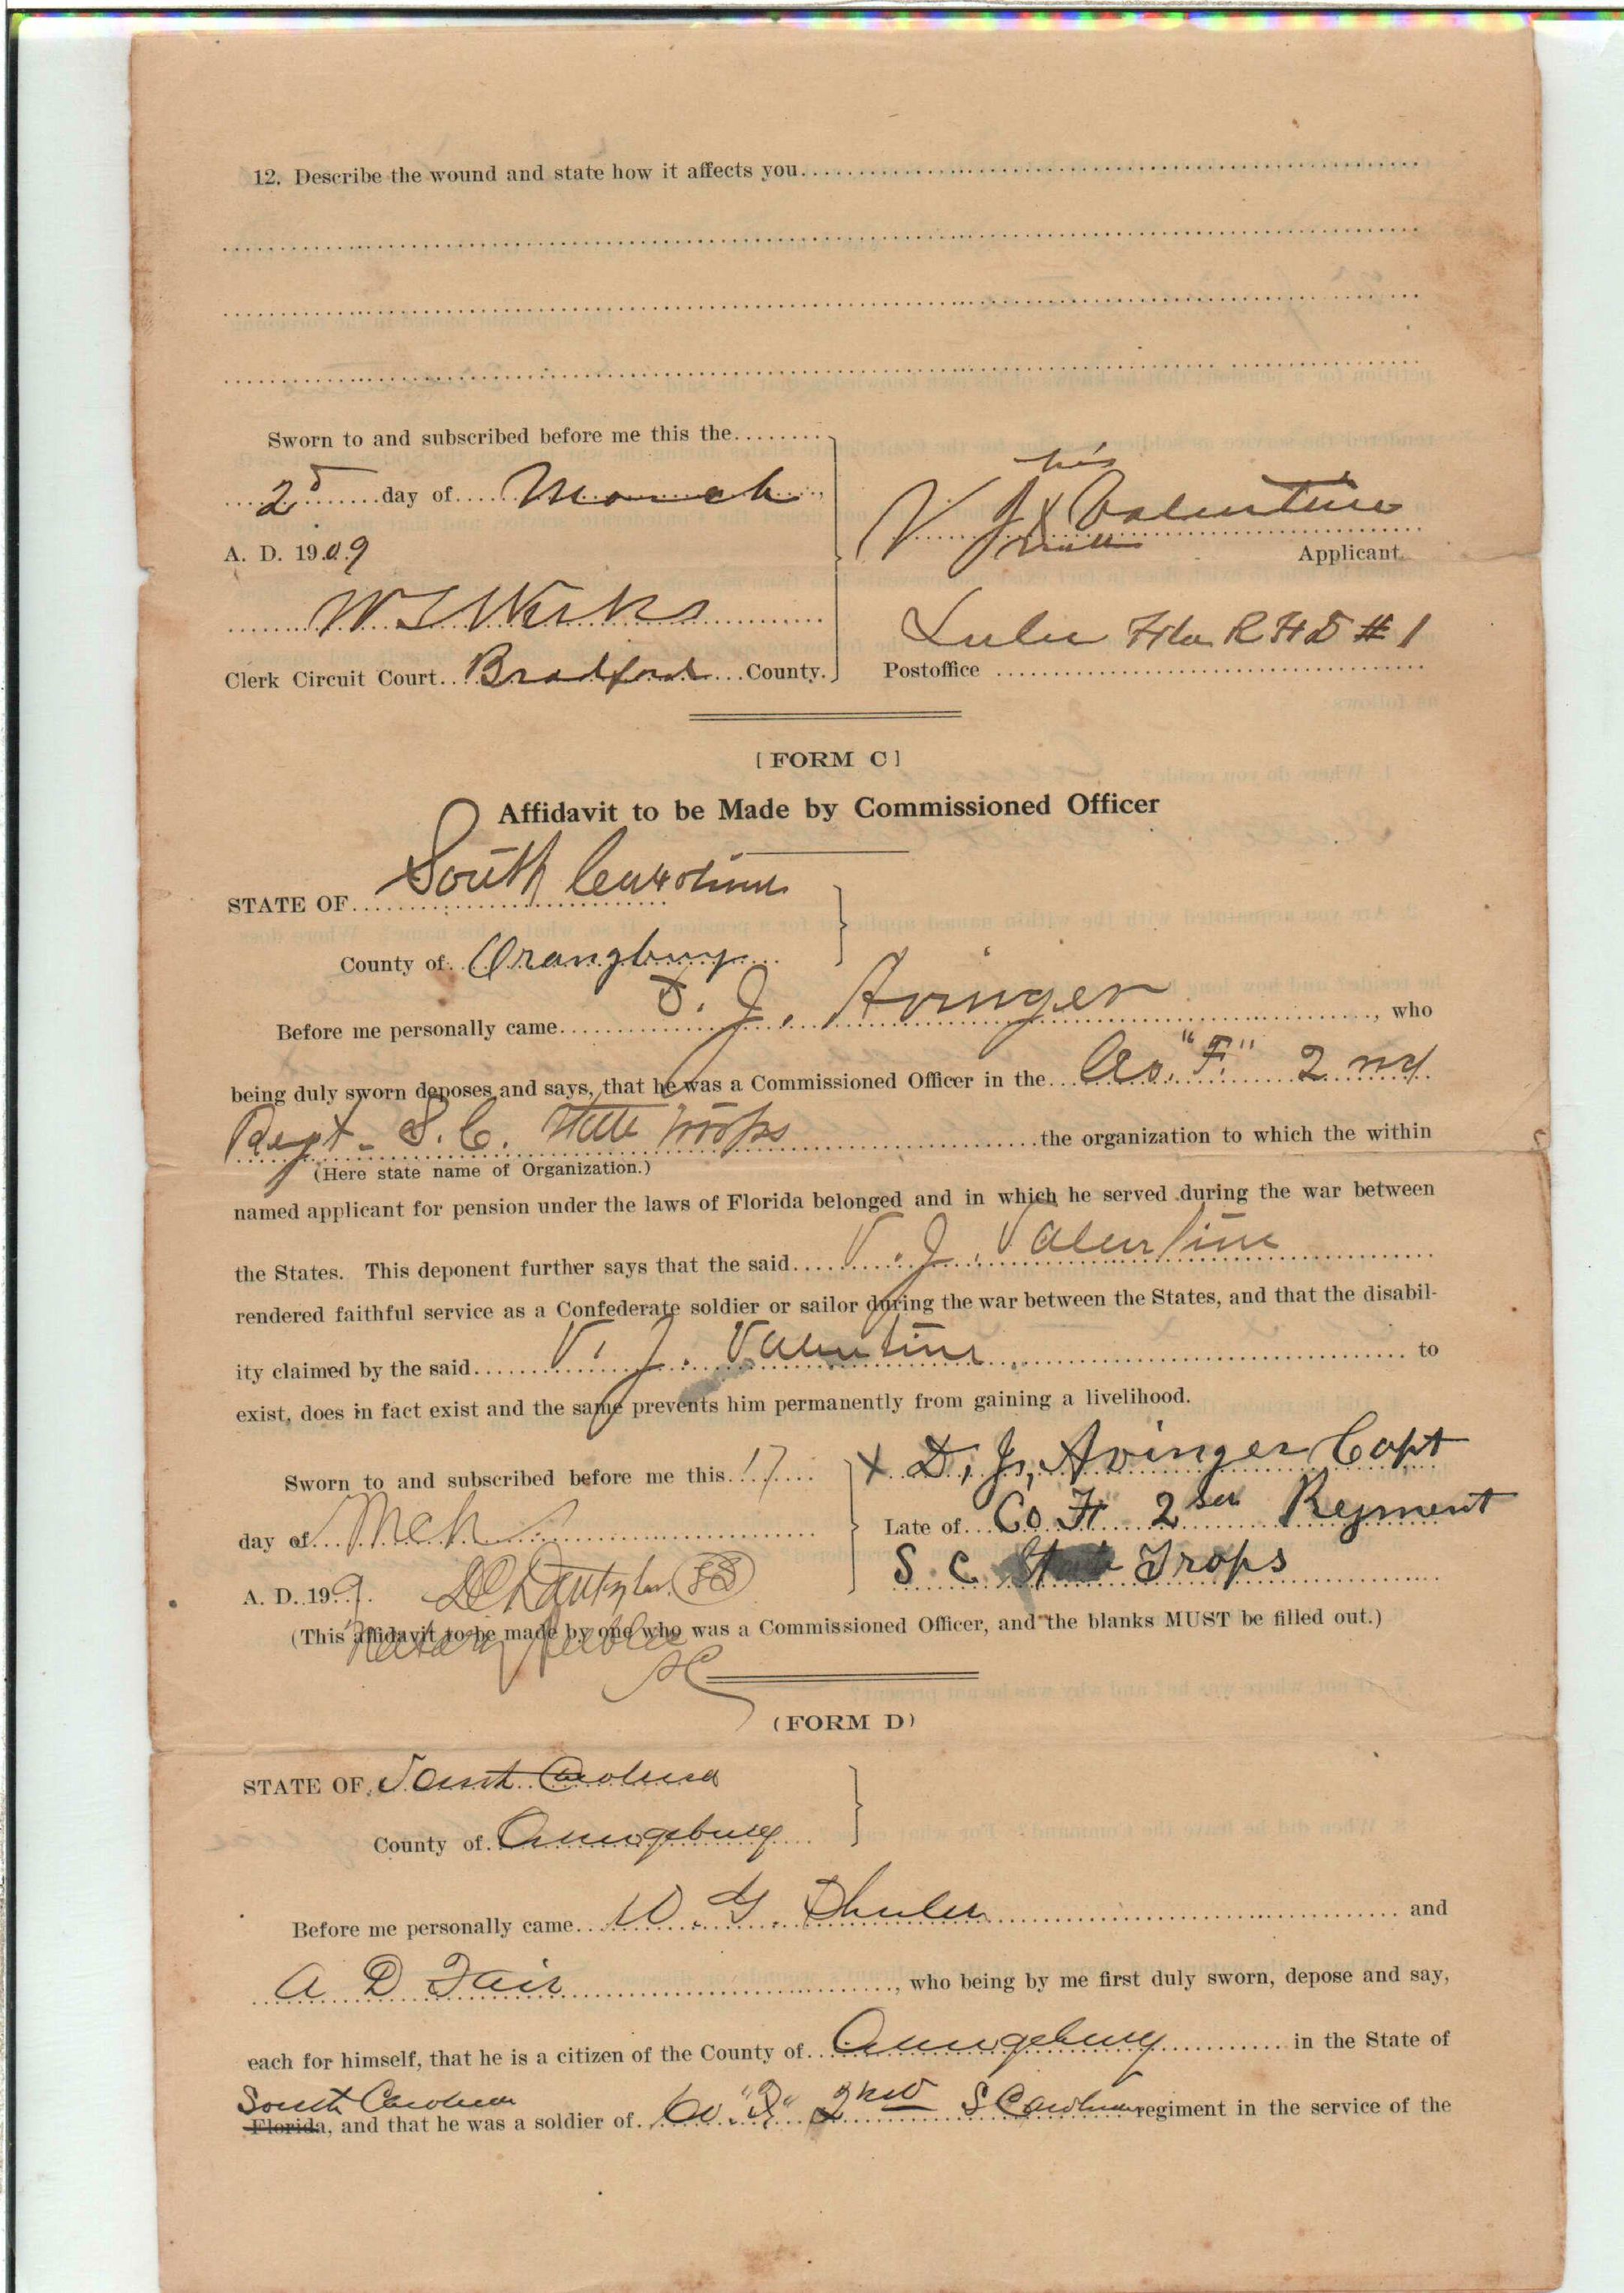 12. Describe the wound and state how it affects you
Sworn to and subscribed before me this the
2d day of March
A. D. 1909
his
V J X Valentine
mark
Applicant
W S Weeks
Clerk Circuit Court Bradford County.
Lulu Fla R F D # 1
Postoffice
[FORM C]
Affidavit to be Made by Commissioned Officer
STATE OF South Carolina
County of Orangburg
Before me personally came D. J. Avinger, who
being duly sworn deposes and says, that he was a Commissioned Officer in the Co. "F" 2nd
Regt - S. C. State Troops the organization to which the within
(Here state name of Organization.)
named applicant for pension under the laws of Florida belonged and in which he served during the war between
the States. This deponent further says that the said V. J. Valentine
rendered faithful service as a Confederate soldier or sailor during the war between the States, and that the disabil-
ity claimed by the said V. J. Valentine to
exist, does in fact exist and the same prevents him permanently from gaining a livelihood.
Sworn to and subscribed before me this 17
day of Mch
A. D. 199
X D. J. Avinger Capt
Late of Co F 2 Regment
S. C State Trops
D Dantzler
(This affidavit to be made by one who was a Commissioned Officer, and the blanks MUST be filled out.)
Notary Public
SC
(FORM D)
STATE OF South Carolina
County of Orangeburg
Before me personally came W. G. Shuler and
A D Fair, who being by me first duly sworn, depose and say,
each for himself, that he is a citizen of the County of Orangeburg in the State of
South Carolina
Florida, and that he was a soldier of Co "F" 2nd S Carolina regiment in the service of the